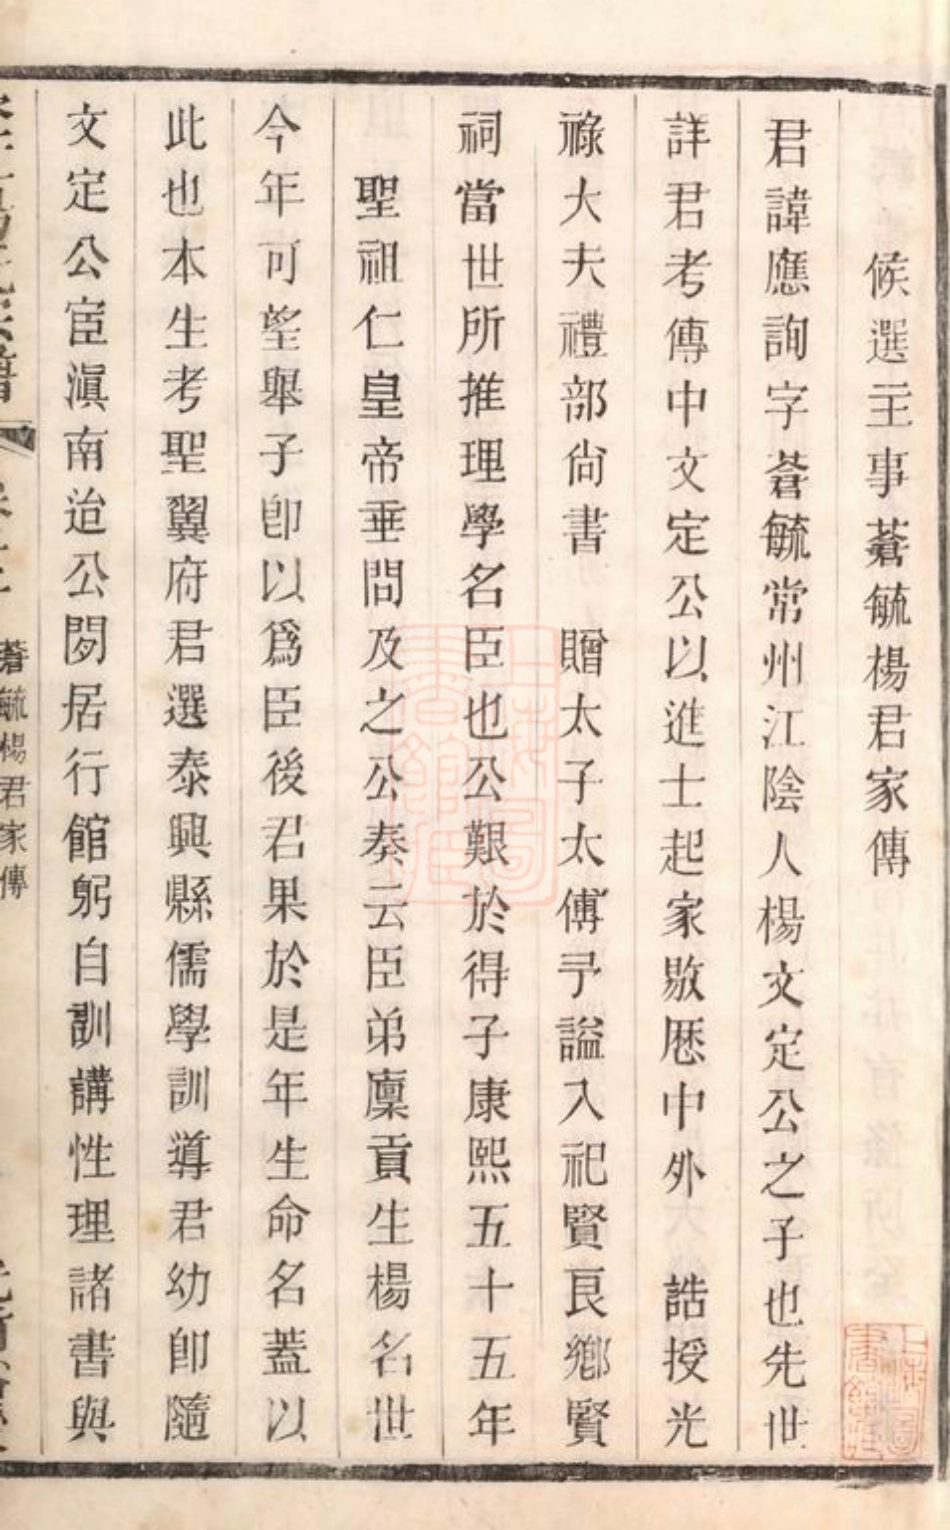 候選主事蒼毓楊君家傳
君諱應詢字蒼毓常州江陰人楊文定公之子也先世
詳君考傳中文定公以進士起家敭歷中外　誥授光
祿大夫禮部尙書　贈太子太傅予謚入祀賢良鄉賢
祠當世所推理學名臣也公艱於得子康熙五十五年
聖祖仁皇帝垂問及之公奏云臣弟廩貢生楊名世
今年可望舉子卽以爲臣後君果於是年生命名蓋以
此也本生考聖翼府君選泰興縣儒學訓導君幼卽隨
文定公宦滇南迨公閒居行館躬自訓講性理諸書與
蒼毓楊君家傳